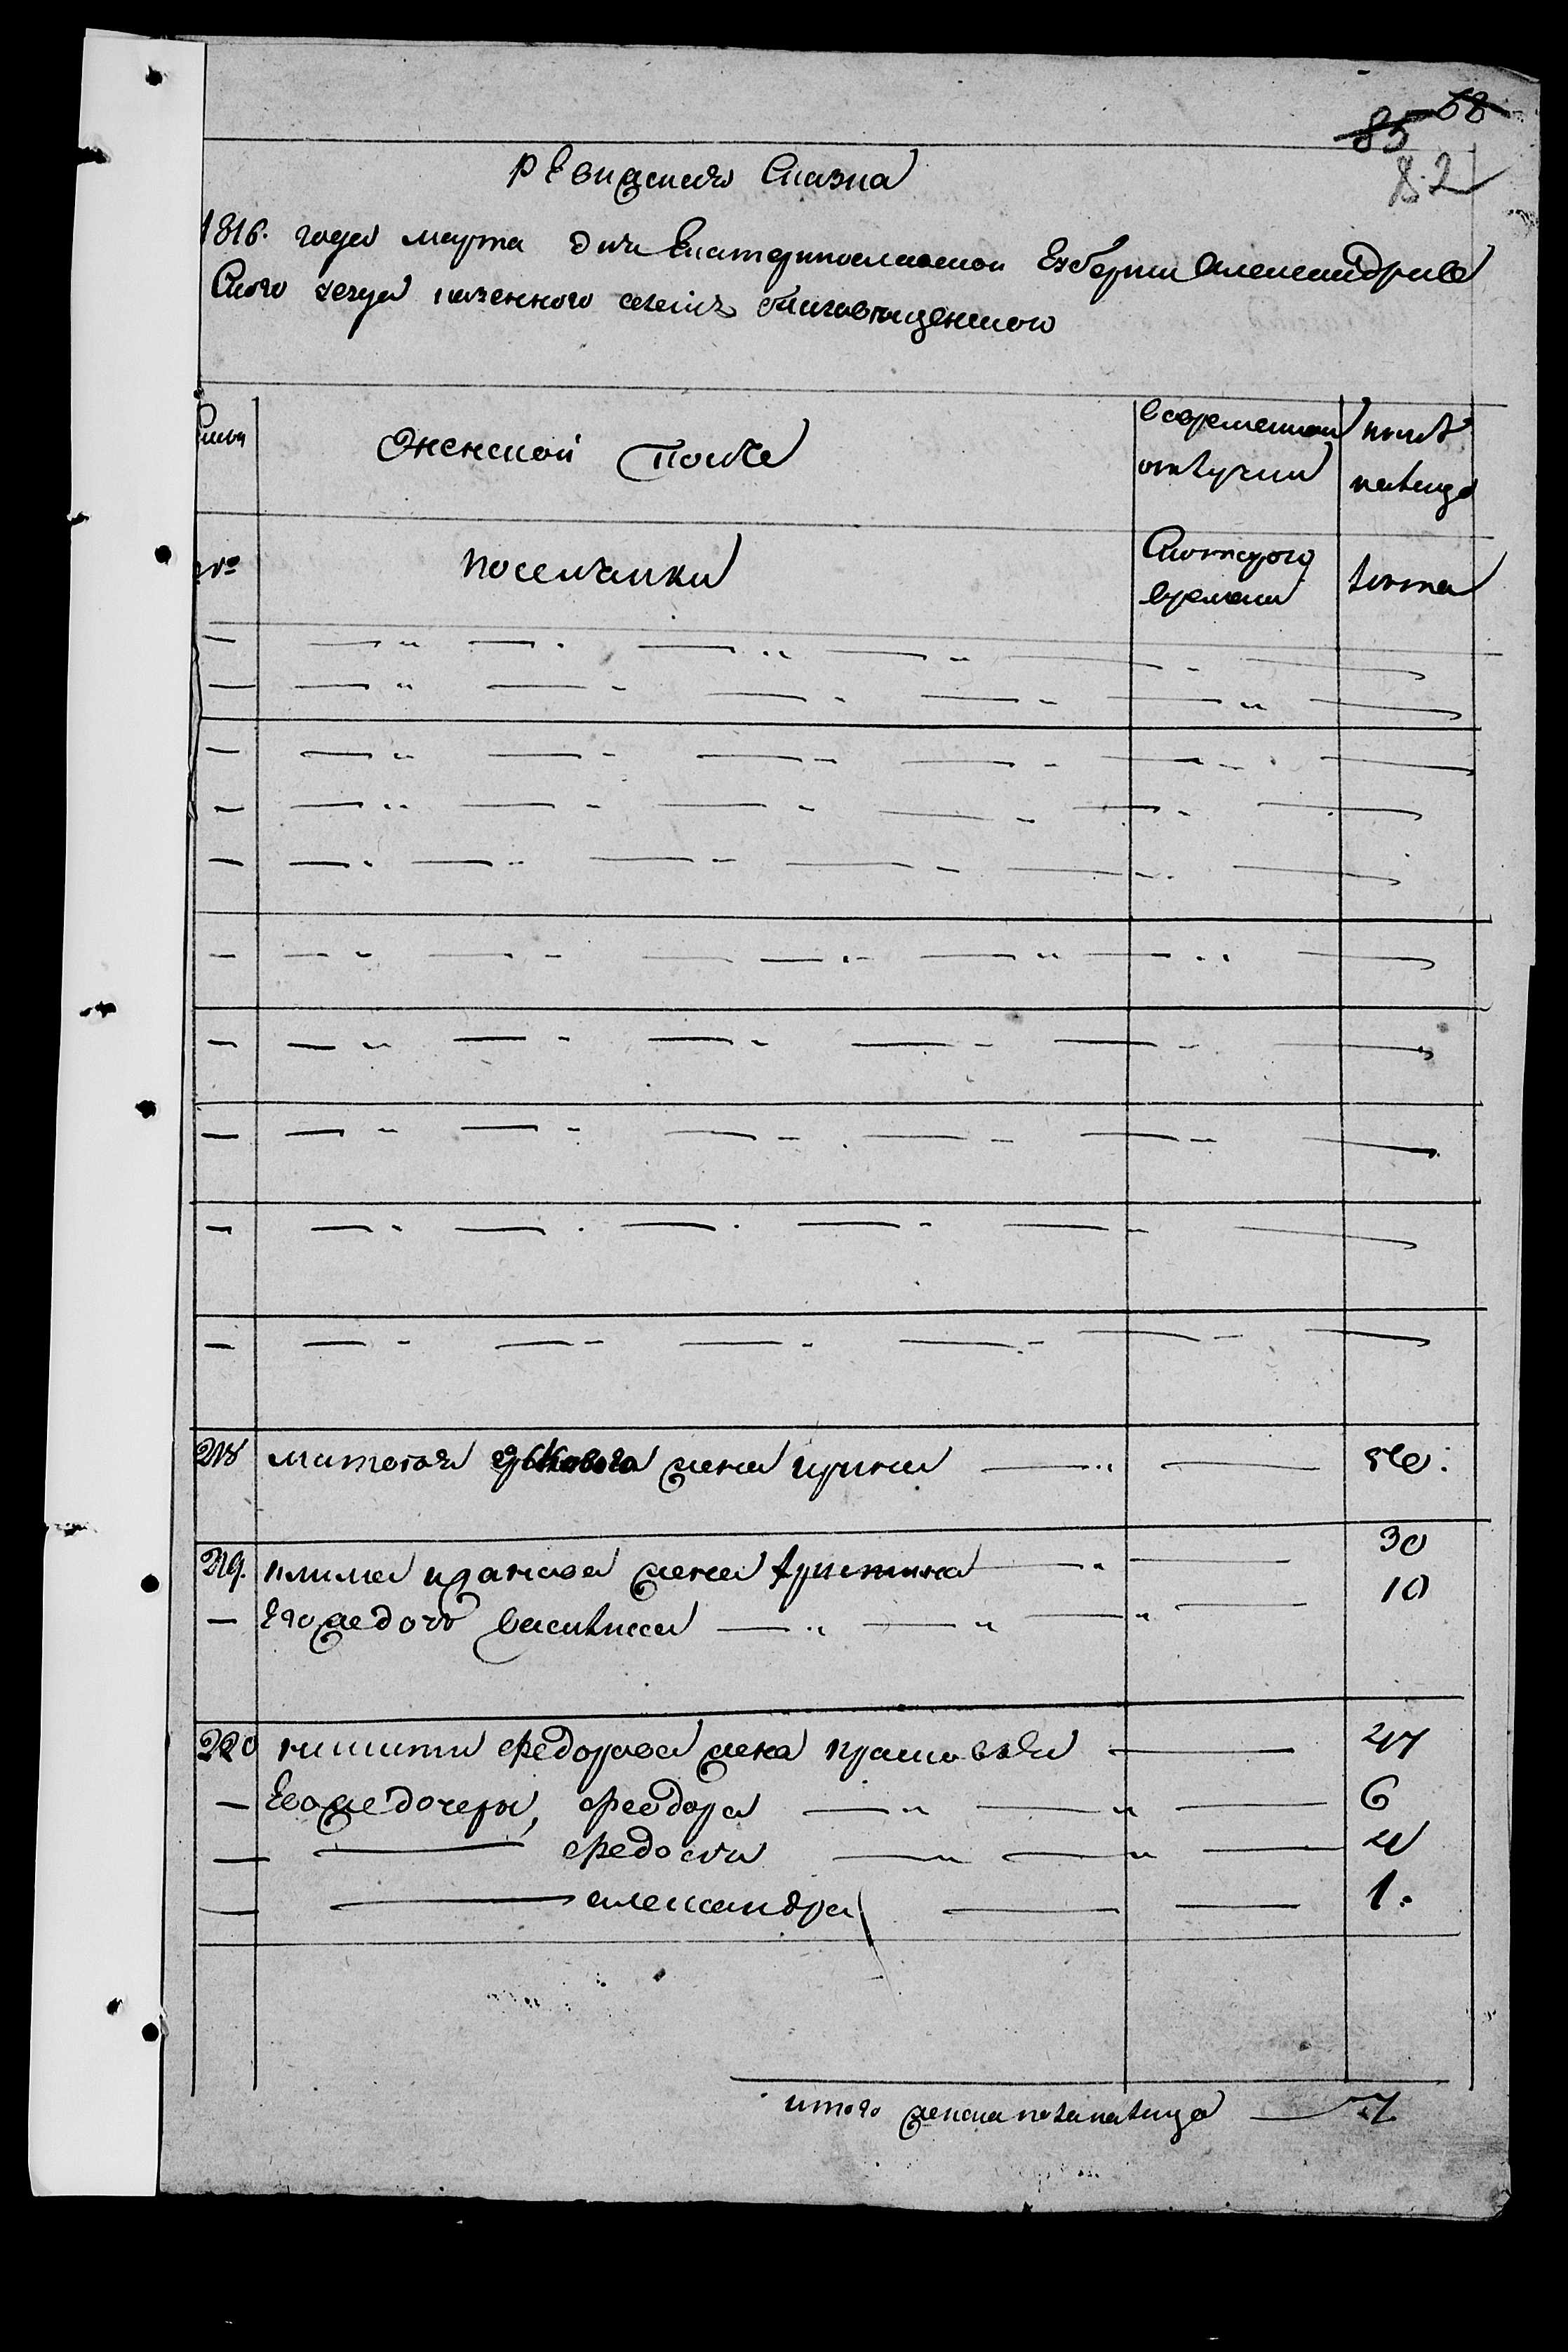 85 58
82
Ревижская Сказка
1816. года марта дня Екатеринославской Губернии Александров
Скаго уезда казенного селения благовещенского
Семьи
Женской Полъ
во временной отлучки
ныне налицо
№
поселянки
С которого времени
лета
218 жена ирина
219. клима жена христина 30
Его же дочь василиса 10
220 никиты федорова жена прасковья 27
Его же дочери, феодора 6
федосия
александра 1.
итого женска пола налицо 7